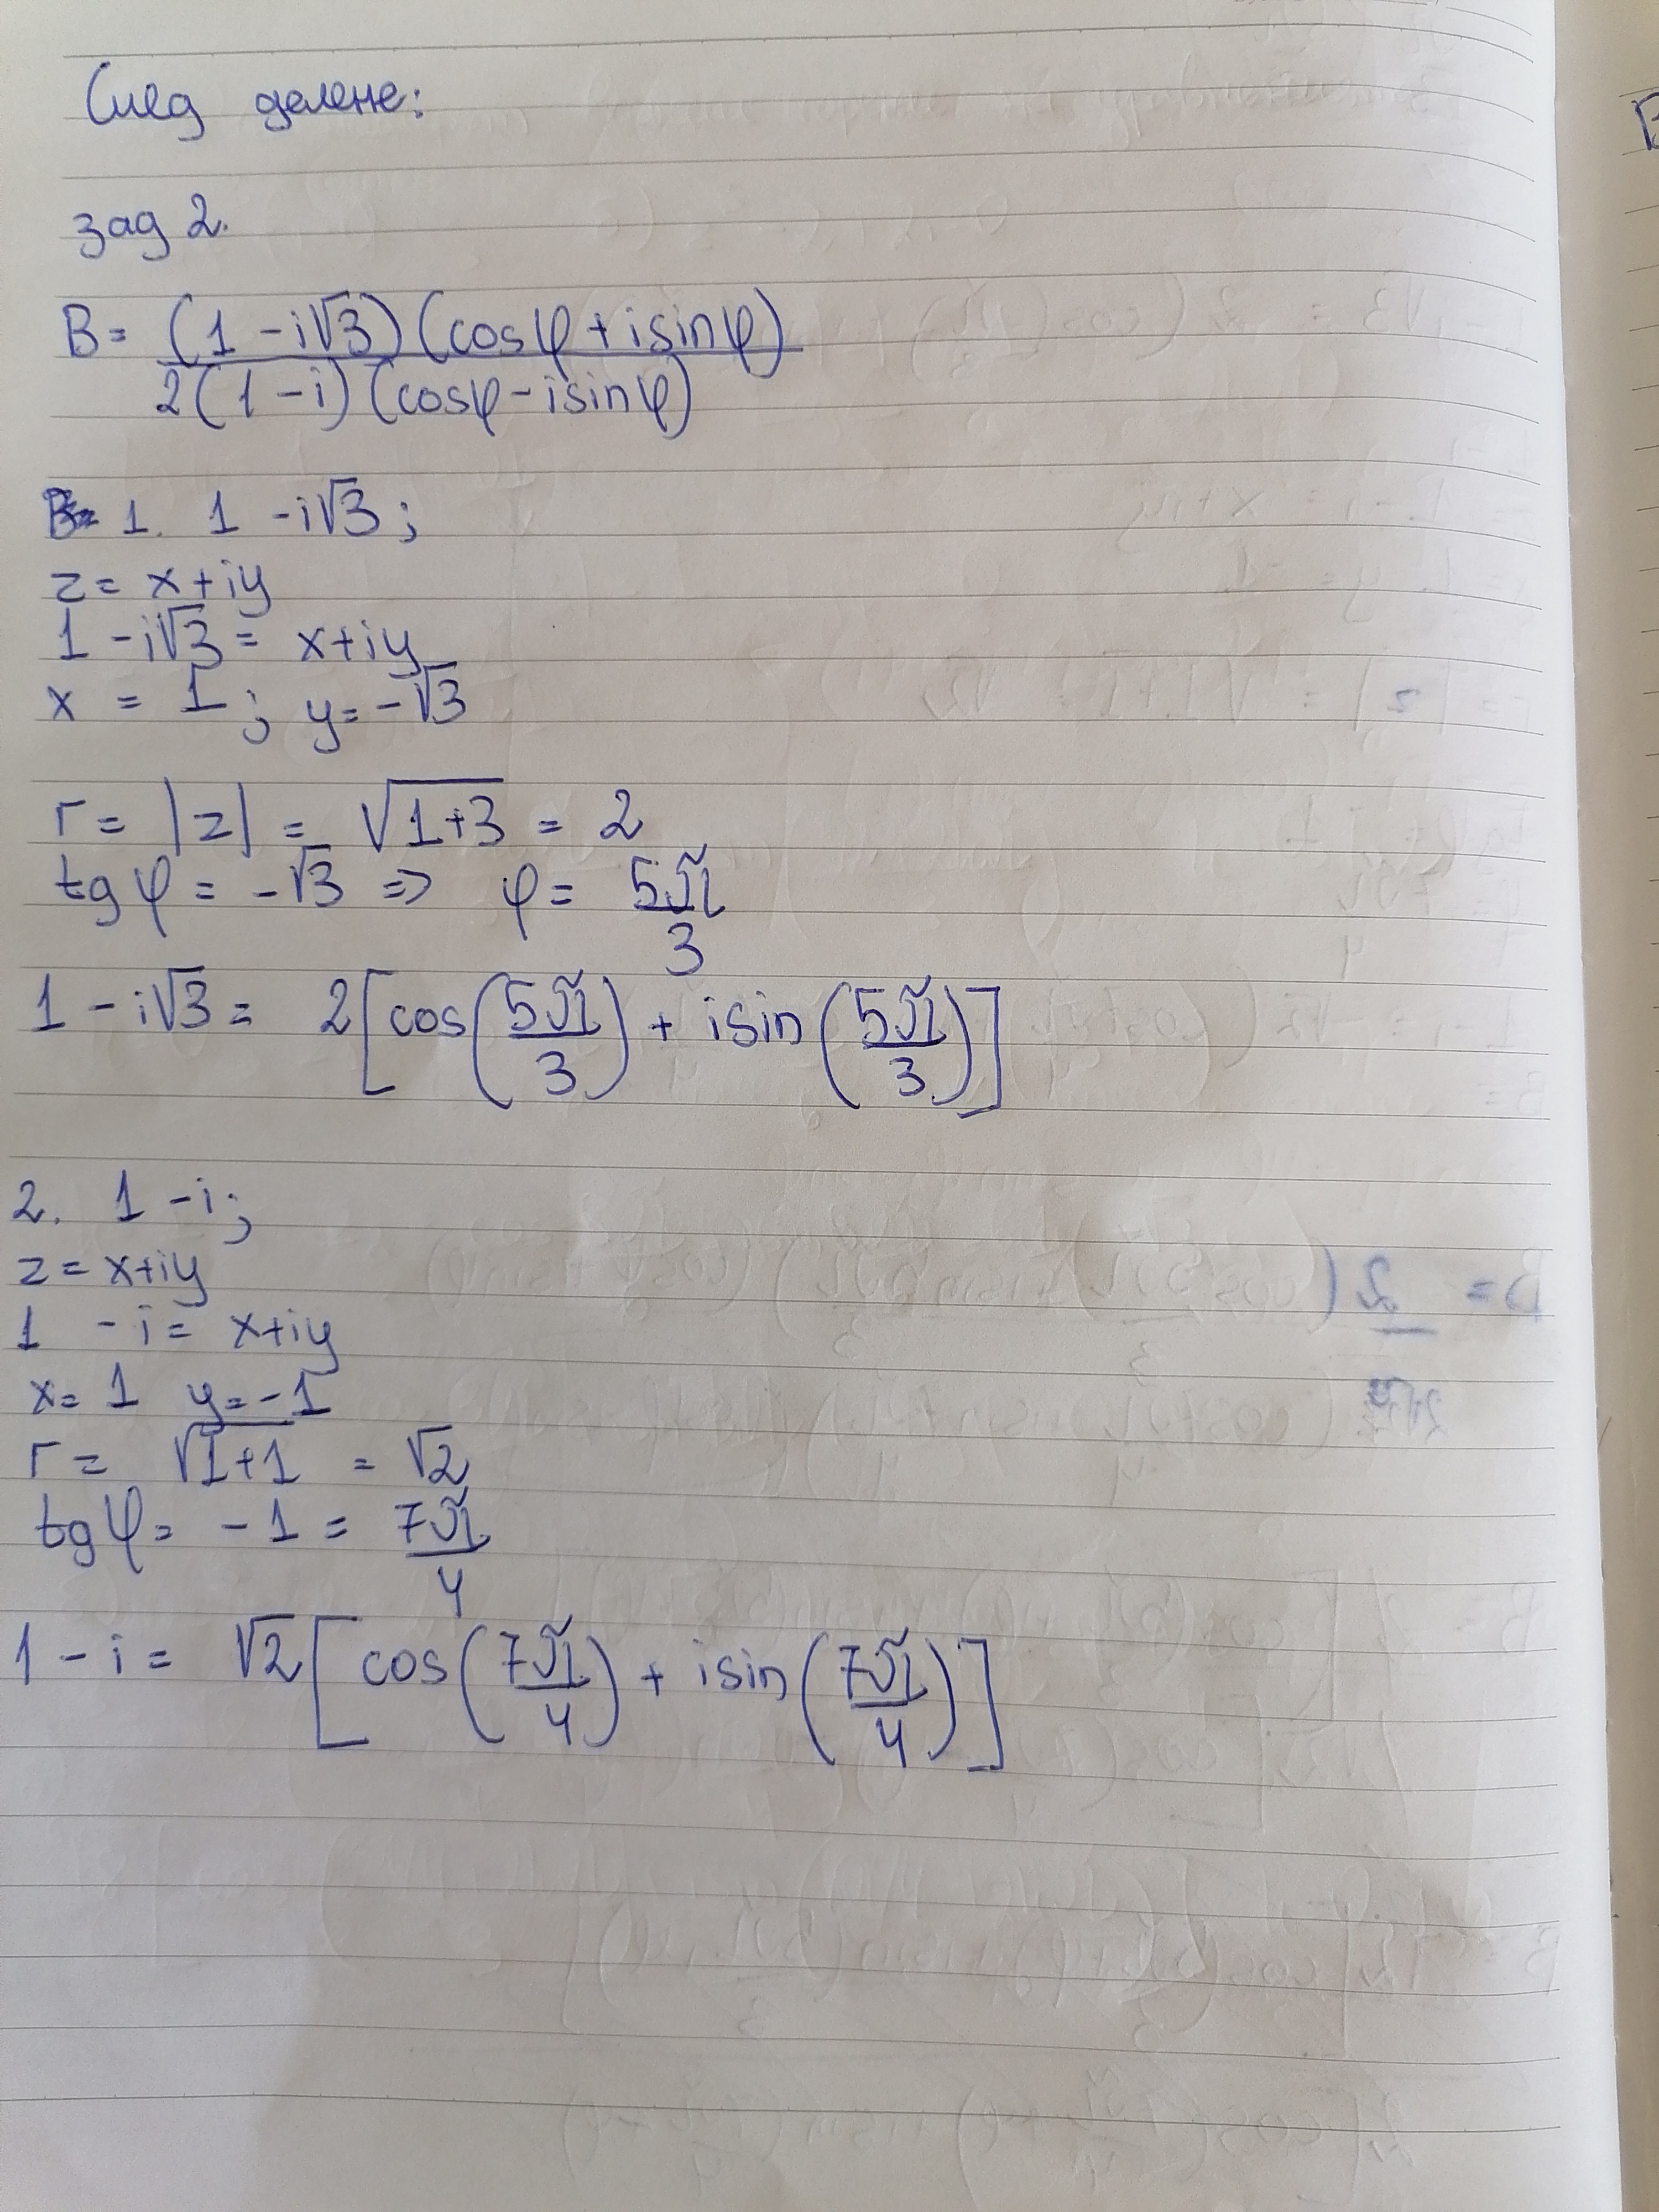 След делене:
зад 2.
B = (1 - i√3)(cosφ + isinφ)
2(1 - i)(cosφ - isinφ)
1. 1 - i√3;
z = x + iy
1 - i√3 = x + iy
x = 1; y = -√3
r = |z| = √1+3 = 2
tgφ = -√3 => φ = 5π/3
1 - i√3 = 2[cos(5π/3) + isin(5π/3)]
2. 1 - i;
z = x + iy
1 - i = x + iy
x = 1 y = -1
r = √1+1 = √2
tgφ = -1 = 7π/4
1 - i = √2[cos(7π/4) + isin(7π/4)]